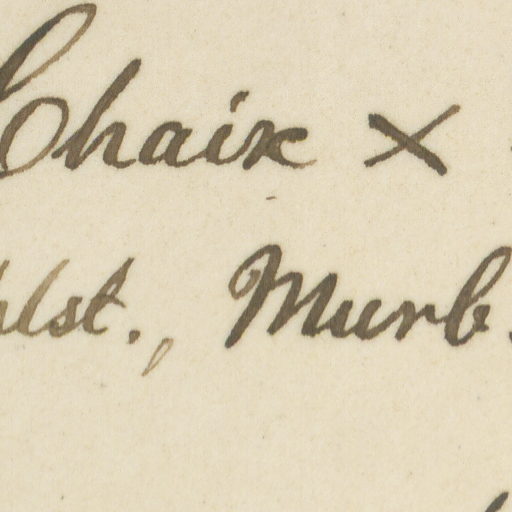 Chaix ×
lst., Murb.